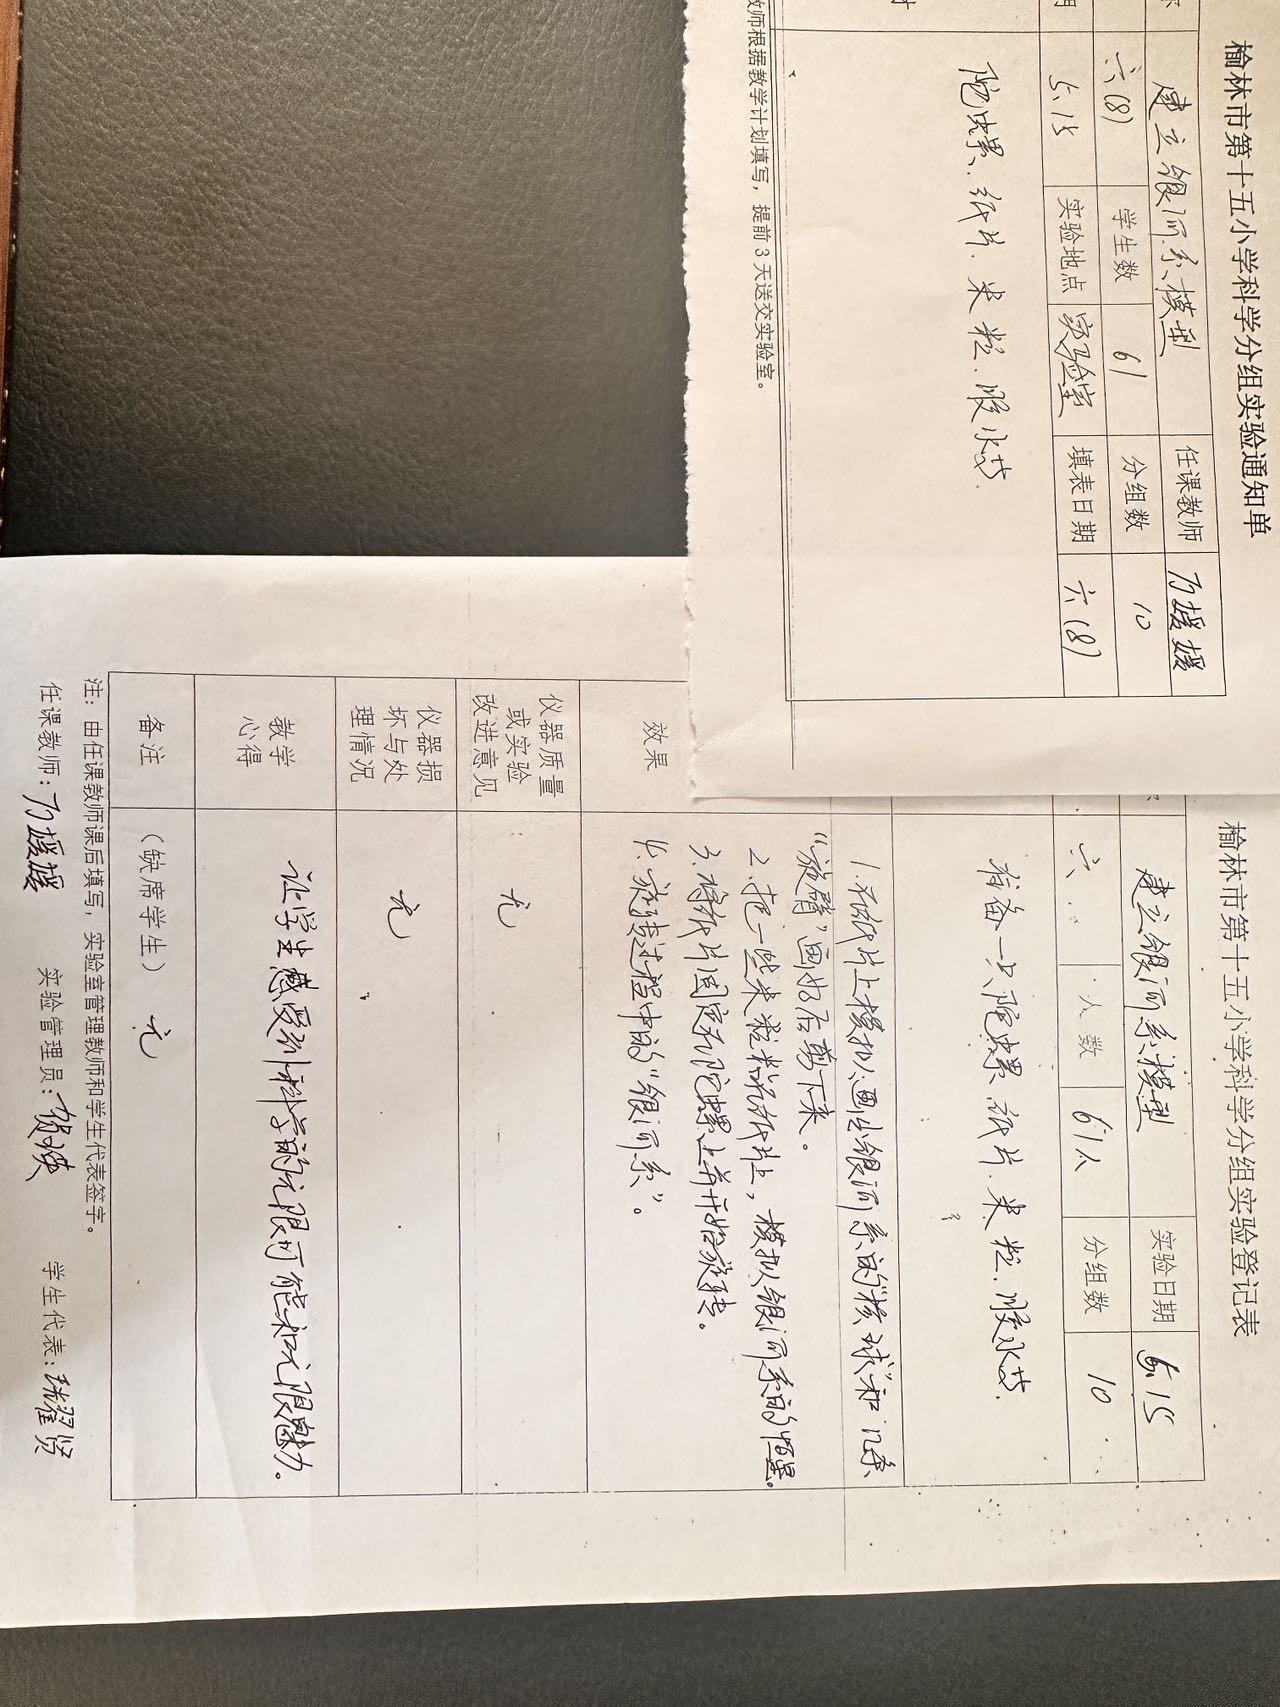 榆林市第十五小学科学分组实验通知单
建立银河系模型 任课教师 乃媛媛
六(8) 学生数 61 分组数 10
5.15 实验地点 实验室 填表日期 六(8)
陀螺、纸片、米粒、胶水等.
教师根据教学计划填写，提前3天送交实验室。
榆林市第十五小学科学分组实验登记表
建立银河系模型 实验日期 5.15
六 人数 61人 分组数 10
准备一只陀螺、纸片、米粒、胶水等.
1.在纸片上模拟画出银河系的“核球”和几条
“旋臂”画好后剪下来。
2.把一些米粒粘在纸片上，模拟银河系的恒星。
3.将纸片固定在陀螺上并开始旋转。
效果
4.旋转过程中的“银河系”。
仪器质量
或实验
改进意见
无
仪器损
坏与处
理情况
无
教学
心得
让学生感受到科学的无限可能和无限魅力。
备注 （缺席学生） 无
注：由任课教师课后填写，实验室管理教师和学生代表签字。
任课教师：乃媛媛 实验管理员： 学生代表：